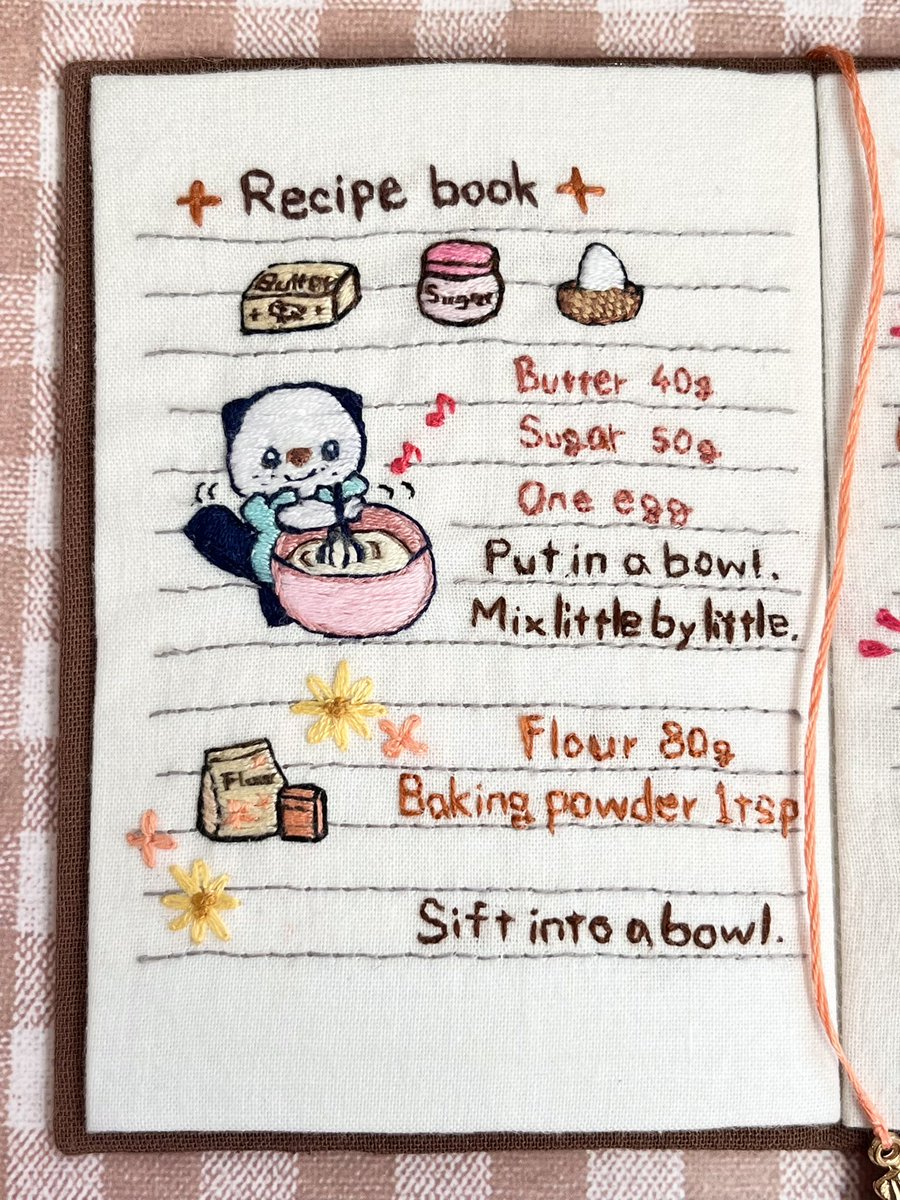 Recipe book
Butter
Sugar
Butter 40g
Sugar 50g
One egg
Put in a bowl.
Mix little by little.
Flour 80g
Flour
Baking powder 1tsp
Sift into a bowl.